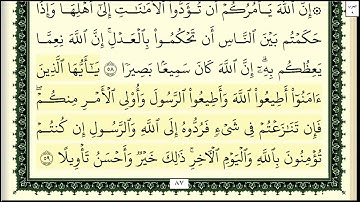 ۞ إِنَّ ٱللَّهَ يَأۡمُرُكُمۡ أَن تُؤَدُّواْ ٱلۡأَمَٰنَٰتِ إِلَىٰٓ أَهۡلِهَا وَإِذَا
حَكَمۡتُم بَيۡنَ ٱلنَّاسِ أَن تَحۡكُمُواْ بِٱلۡعَدۡلِۚ إِنَّ ٱللَّهَ نِعِمَّا
يَعِظُكُم بِهِۦٓۗ إِنَّ ٱللَّهَ كَانَ سَمِيعَۢا بَصِيرٗا ٥٨ يَٰٓأَيُّهَا ٱلَّذِينَ
ءَامَنُوٓاْ أَطِيعُواْ ٱللَّهَ وَأَطِيعُواْ ٱلرَّسُولَ وَأُوْلِي ٱلۡأَمۡرِ مِنكُمۡۖ
فَإِن تَنَٰزَعۡتُمۡ فِي شَيۡءٖ فَرُدُّوهُ إِلَى ٱللَّهِ وَٱلرَّسُولِ إِن كُنتُمۡ
تُؤۡمِنُونَ بِٱللَّهِ وَٱلۡيَوۡمِ ٱلۡأٓخِرِۚ ذَٰلِكَ خَيۡرٞ وَأَحۡسَنُ تَأۡوِيلًا ٥٩
٨٧